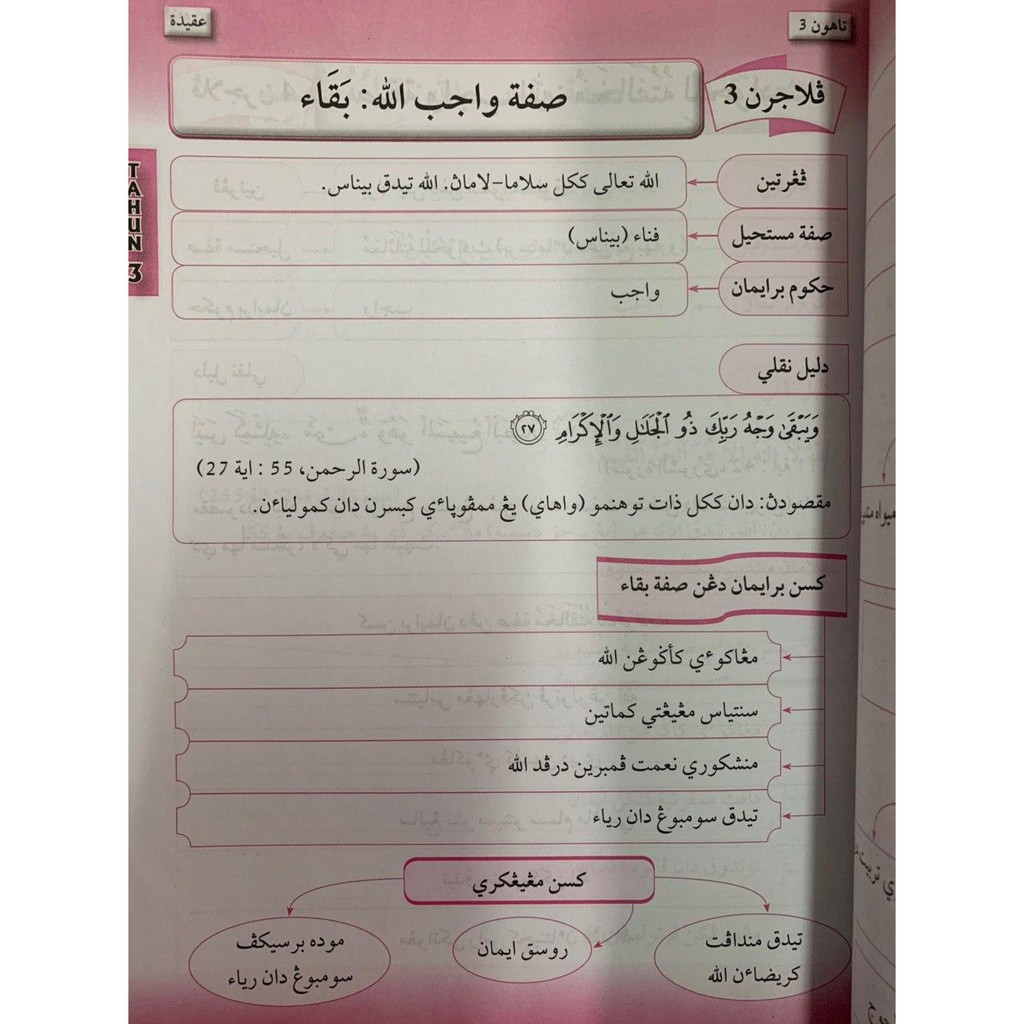 تاهون 3
عقيدة
ڤلاجرن 3
صفة واجب الله: بَقَاء
TAHUN 3
ڤڠرتين
الله تعالى ككل سلاما-لاماڽ. الله تيدق بيناس.
صفة مستحيل
فناء (بيناس)
حكوم برايمان
واجب
دليل نقلي
وَيَبْقَىٰ وَجْهُ رَبِّكَ ذُو ٱلْجَلَٰلِ وَٱلْإِكْرَامِ ٢٧
(سورة الرحمن، 55 : اية 27)
مقصودڽ: دان ككل ذات توهنمو (واهاي) يڠ ممڤوڽاءي كبسرن دان كمولياءن.
كسن برايمان دڠن صفة بقاء
مڠاكوءي كأݢوڠن الله
سنتياس مڠيڠتي كماتين
منشكوري نعمت ڤمبرين درڤد الله
تيدق سومبوڠ دان رياء
كسن مڠيڠكري
تيدق منداڤت
كريضاءن الله
روسق ايمان
موده برسيكڤ
سومبوڠ دان رياء